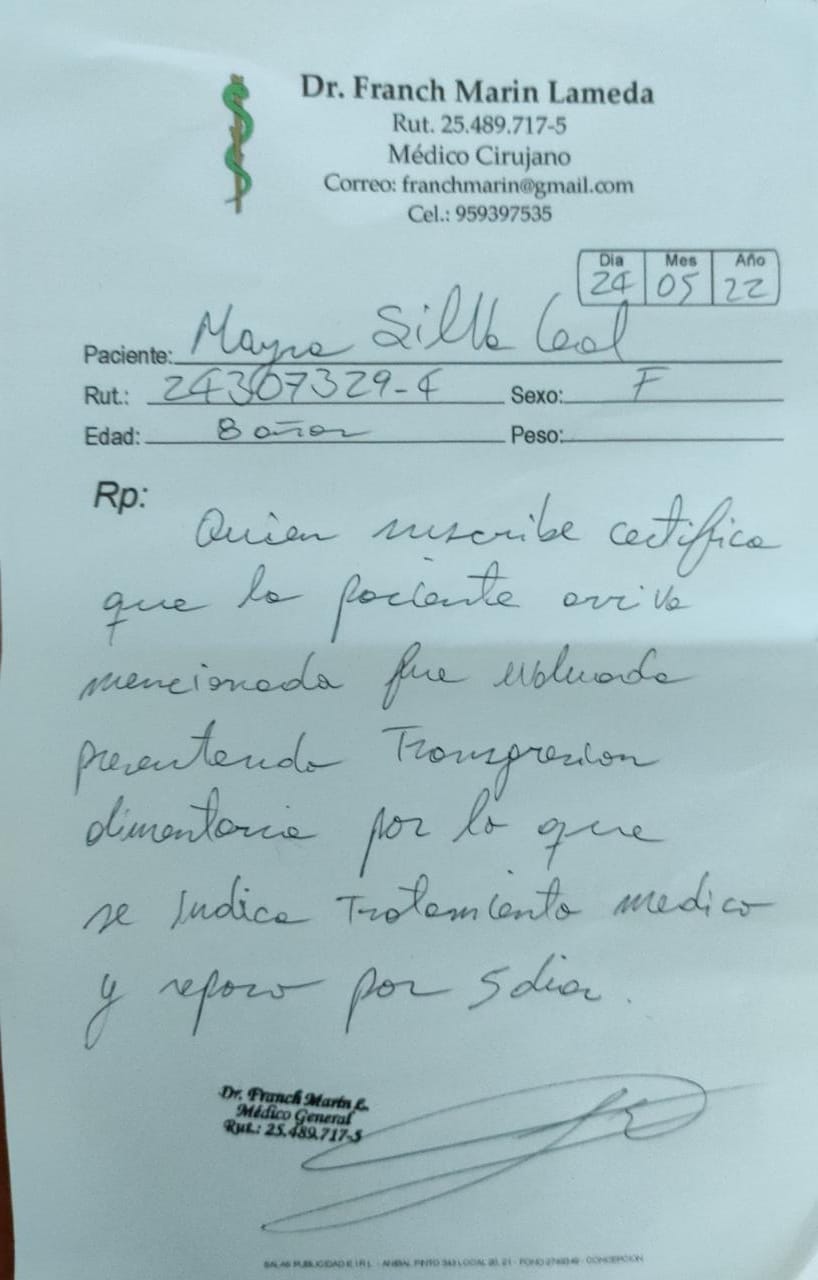 Dr. Franch Marin Lameda
Rut. 25.489.717-5
Médico Cirujano
Correo: franchmarin@gmail.com
Cel.: 959397535
Dia Mes Año
24 05 22
Paciente: Mayra Silva Leal
Rut.: 24307329-4 Sexo: F
Edad: 8 años Peso:
Rp:
Quien suscribe certifica
que la paciente arriba
mencionada fue evaluada
presentando Transgresion
alimentaria por lo que
se indica Tratamiento medico
y reposo por 5 dias.
Dr. Franch Marin L.
Médico General
Rut.: 25.489.717-5
SALAS PUBLICIDAD E.I.R.L. - ANIBAL PINTO 343 LOCAL 20, 21 - FONO - CONCEPCION